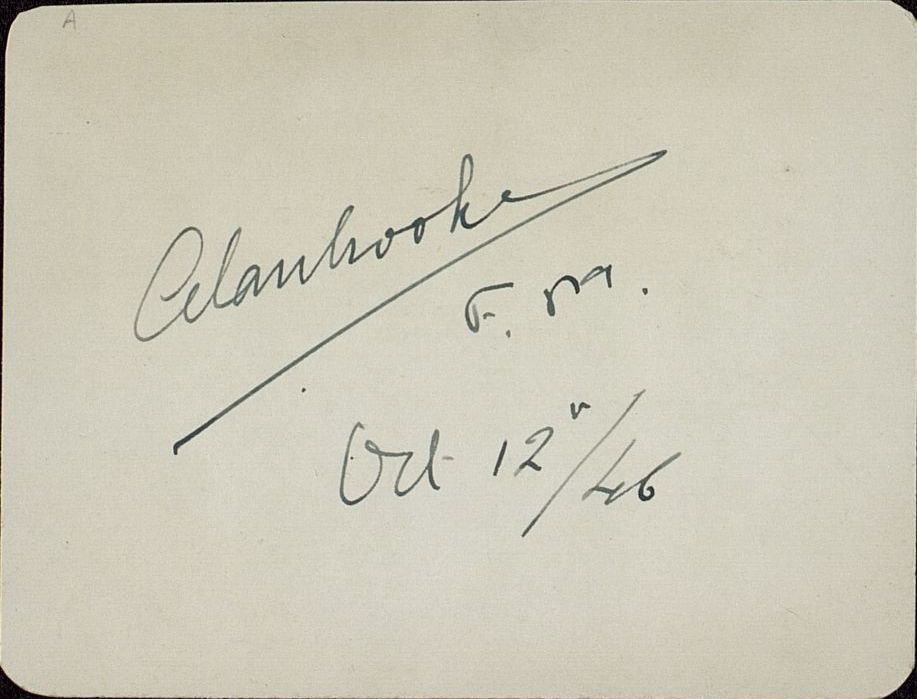 A
Alanbrooke
F. M.
Oct 12th/46